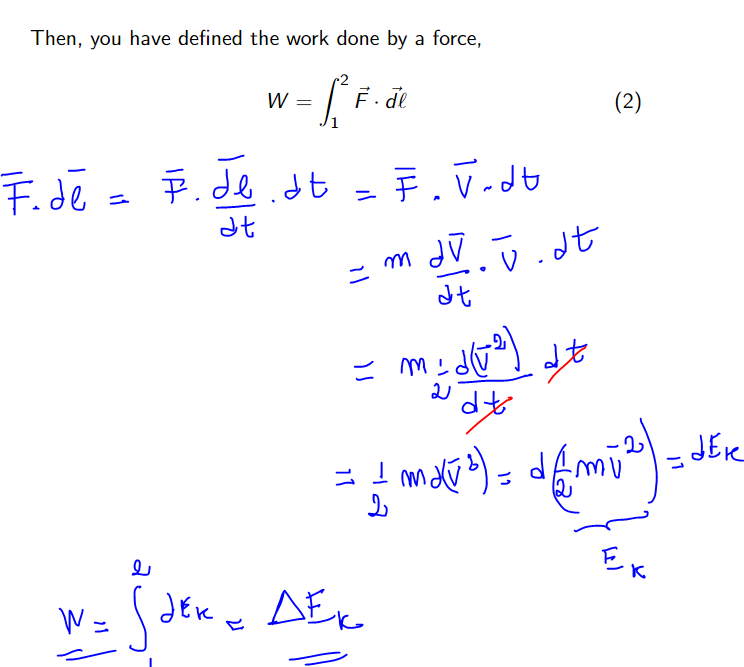 Then, you have defined the work done by a force,
W = ∫₁² F⃗ · d⃗ℓ (2)
F̅. dl̅ = F̅. dl̅/dt . dt = F̅ . v̅ . dt
= m dv̅/dt . v̅ . dt
= m 1/2 d(v̅²)/dt dt
= 1/2 m d(v̅²) = d(1/2 m v̅²) = dEK
EK
W = ∫₁² dEK = ΔEK